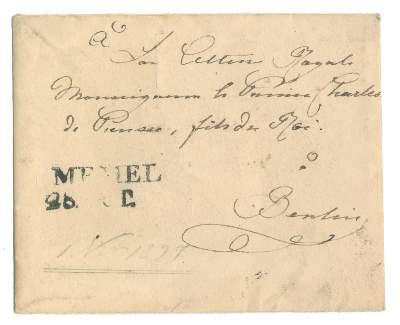 à
Son Altesse Royale
Monseigneur le Prince Charles
de Prusse, fils du Roi.
à
Berlin
MEMEL
26.